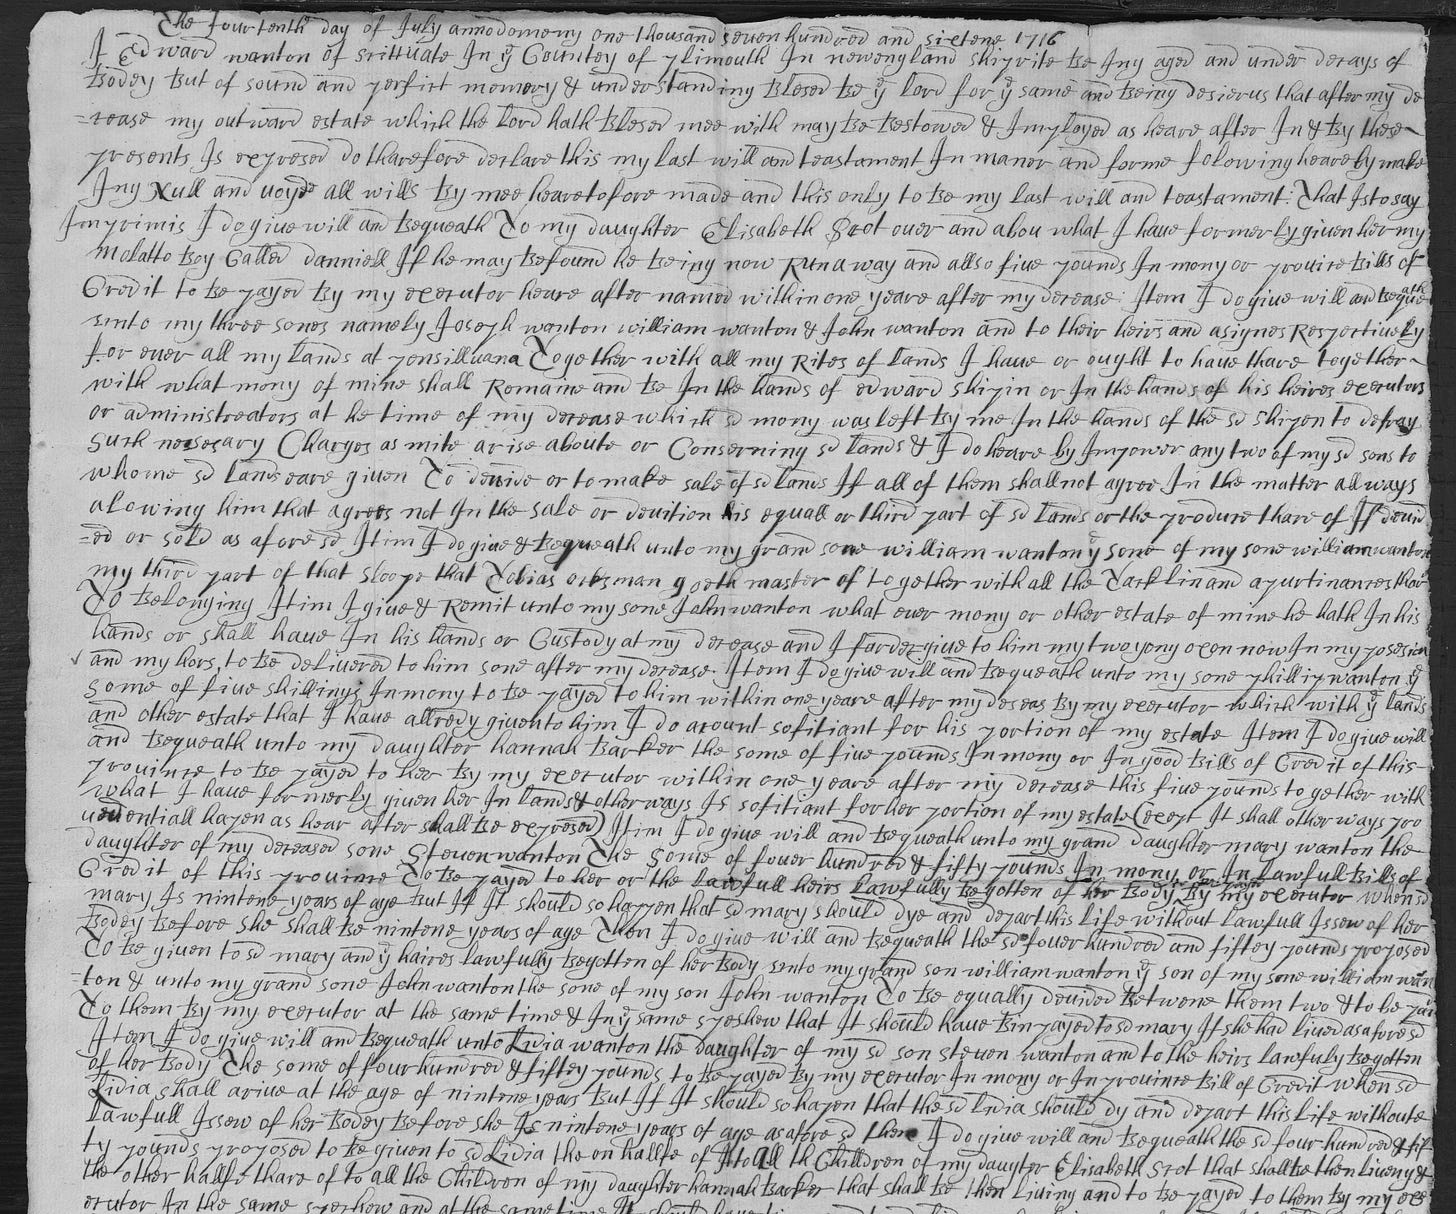 The fourtenth day of July annodomeny one thousand seven hundred and sixtene 1716
I Edward wanton of Sittuate In yͤ Countey of plimouth In newengland shipvrite be Ing aged and under decays of
Bodey But of sound and perfict memory & understanding Blesed be yͤ lord for yͤ same and being desierus that after my de
=cease my outward estate which the Lord hath Blesed mee with may be Bestowed & Imployed as heare after In & by these
presents Is expresed do tharefore declare this my last will and teastament In maner and forme folowing heare by make
Ing Null and voyde all wills By mee hearetofore made and this only to be my last will and teastament: That Is to say
Imprimis I do give will and bequeath To my daughter Elisabeth Scot over and abou what I have formerly given her my
Molatto Boy Called danniell If he may be found he being now Run away and allso five pounds In mony or province Bills of
Credit to be payed By my executor heare after named within one yeare after my decease: Item I do give will and bequeath
unto my three sones namely Joseph wanton william wanton & John wanton and to their heirs and asignes Respectively
for ever all my Lands at pensillvana Together with all my Rites of Lands I have or ought to have thare together
with what mony of mine shall Romaine and be In the hands of edward shipin or In the hands of his heires executors
or administreators at he time of my decease which sd mony was left by me In the hands of the sd shipen to defray
Such necesary Charges as mite arise aboute or Conserning sd lands & I do heare by Impower any two of my sd sons to
whome sd lands eare given To devide or to make sale of sd lands If all of them shall not agree In the matter all ways
alowing him that agrees not In the sale or devition his equall or third part of sd lands or the produce thare of If devid
=ed or sold as afore sd Itim I do give & bequeath unto my grand sone william wanton yͤ sone of my sone william wanton
my third part of that sloope that Tobias goeth master of together with all the Tacklin and apurtinances thar
To belonging Itim I give & Remit unto my sone John wanton what ever mony or other estate of mine he hath In his
hands or shall have In his hands or Custody at my decease and I farder give to him my two yong oxen now In my posesion
and my hors, to be delivered to him sone after my decease. Item I do give will and bequeath unto my sone phillip wanton yͤ
Some of five shillings In mony to be payed to him within one yeare after my deseas by my executor which with yͤ lands
and other estate that I have allredy given to him I do acount sofitiant for his portion of my estate Item I do give will
and bequeath unto my daughter hannah Barker the some of five pounds In mony or In good Bills of Credit of this
province to be payed to her By my executor within one yeare after my decease this five pounds to gether with
what I have formerly given her In lands & other ways Is sofitiant for her portion of my estate (exept It shall other ways pro
vedentiall hapen as hear after shall be expresed) Itim I do give will and bequeath unto my grand daughter mary wanton the
daughter of my deceased sone Steven wanton The Some of fouer hundred & fifty pounds In mony or In Lawfull Bills of
Credit of this province To be payed to her or the Lawfull heirs Lawfully begotten of her Body By my executor when sd
mary Is nintene years of age But If It should so hapen that sd mary should dye and depart this life without lawfull Issew of her
Bodey Before she shall be nintene years of age Then I do give will and bequeath the sd fouer hundred and fiftey pounds proposed
To be given to sd mary and yͤ haires lawfully begotten of her body unto my grand son william wanton yͤ son of my sone william wan
=ton & unto my grand sone John wanton the sone of my son John wanton To be equally devided betwene them two & to be paid
To them By my executor at the same time & In yͤ same speshew that It should have bin payed to sd mary If she had lived as afore sd
Item I do give will and bequeath unto Lidia wanton the daughter of my sd son steven wanton and to the heirs lawfuly begotten
of her Body The some of four hundred & fiftey pounds to be payed by my executor In mony or In province Bill of Credit when sd
Lidia shall arive at the age of nintene years But If It should so hapen that the sd Lidia should dy and depart this life withoute
Lawfull Issew of her Bodey before she Is nintene years of age as afore sd then I do give will and bequeath the sd four hundred & fif
ty pounds proposed to be given to sd Lidia the on hallfe of It to all th Children of my daugter Elisabeth Scot that shall be then liveing &
the other hallfe thare of to all the Children of my daughter hannah Barker that shall be then living and to be payed to them by my exe
cutor In the same speshew and at the same time It should have